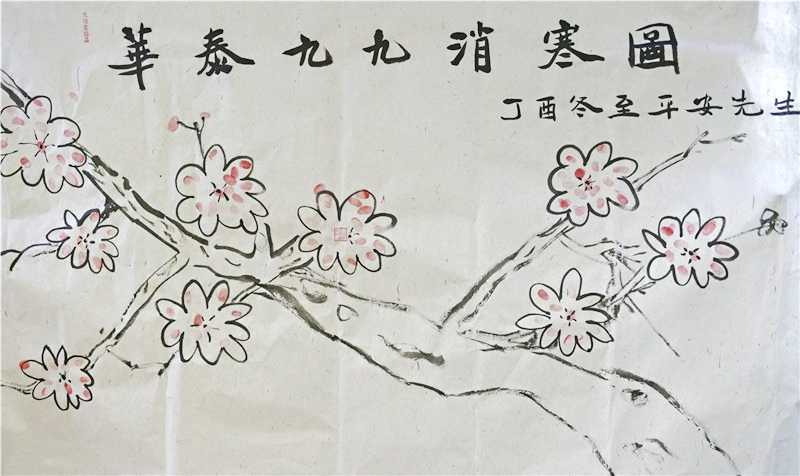 華泰九九消寒圖
丁酉冬至平安先生